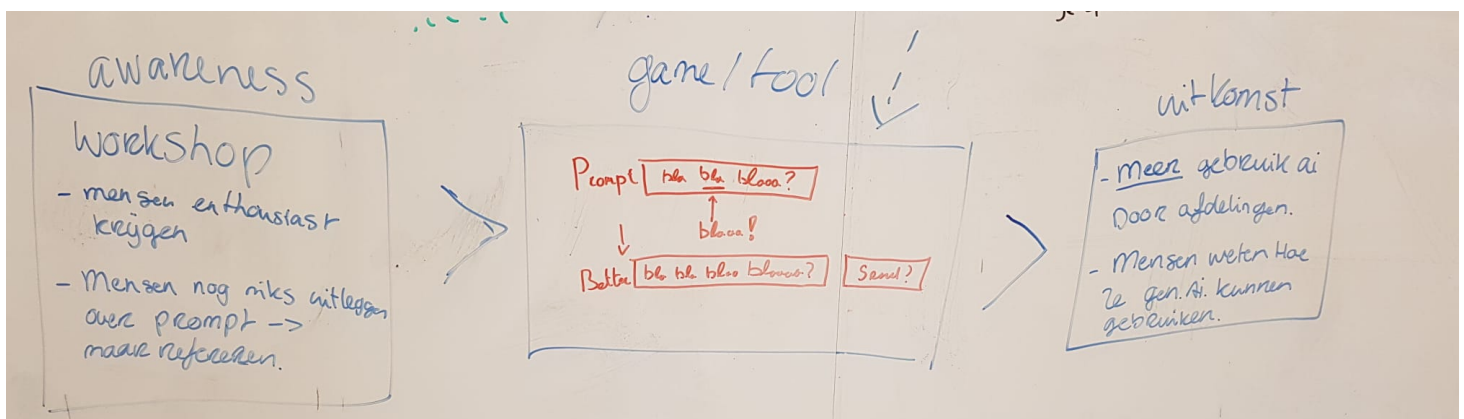 awareness
workshop
- mensen enthousiast
krijgen
- Mensen nog niks uitleggen
over prompt ->
maar refereren.
game/tool
Prompt bla bla blaaa?
blaaa!
Better bla bla blaa blaaaa? Send?
uitkomst
- Meer gebruik ai
Door afdelingen.
- Mensen weten Hoe
Ze gen. Ai. kunnen
gebruiken.